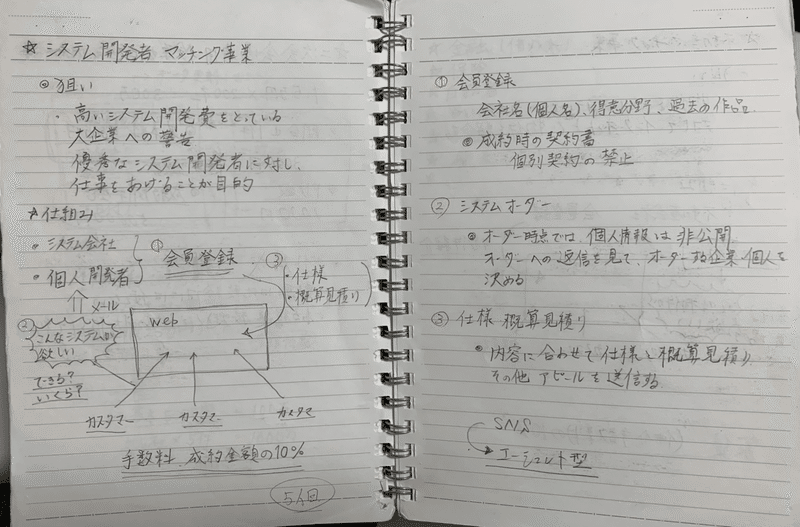 ☆ システム開発者 マッチング事業
◎狙い
・高いシステム開発費をとっている
大企業への警告
優秀なシステム開発者に対し、
仕事をあげることが目的
☆仕組み
・システム会社
・個人開発者
① 会員登録
③ ・仕様
・概算見積り
メール
web
②
こんなシステムが
欲しい
できる?
いくら?
カスタマー カスタマー カスタマ
手数料 成約金額の10%
① 会員登録
会社名(個人名)、得意分野、過去の作品
◎ 成約時の契約書
個別契約の禁止
② システムオーダー
◎ オーダー時点では、個人情報は非公開
オーダーへの返信を見て、オーダーする企業・個人を
決める
③ 仕様・概算見積り
・内容に合わせて仕様と概算見積り
その他アピールを送信する
SNS
エージェント型